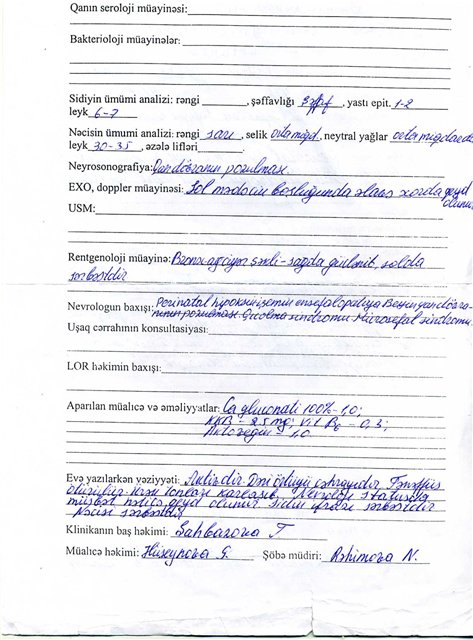 Qanın seroloji müayinəsi:
Bakterioloji müayinələr:
Sidiyin ümümi analizi: rəngi , şəffavlığı şəff , yastı epit. 1-2
leyk 6-7
Nəcisin ümumi analizi: rəngi sarı , selik orta miqd , neytral yağlar orta miqdarda
leyk 30-35 , əzələ lifləri .
Neyrosonografiya: Qan dövranın pozulması.
EXO, doppler müayinəsi: Sol mədəcin boşluğunda əlavə xorda qeyd
olunur
USM:
Rentgenoloji müayinə: Bronx-ağciyər şəkli - sağda güclənib, solda
sərbəstdir
Nevrologun baxışı: Perinatal hipoksik işemik ensefalopatiya Beyin qan dövra-
nının pozulması. Qıcolma sindromu Microsefal sindromu
Uşaq cərrahının konsultasiyası:
LOR həkimin baxışı:
Aparılan müalicə və əməliyyatlar: Ca gluconati 100% - 1,0;
KKB - 25 mg; Vit B6 - 0,3;
Aktovegin - 1,0
Evə yazılarkən vəziyyəti: Aktivdir Dəri örtüyü çəhrayıdır Tənəffüs
Ürək tonları Nevroloji statusda
müsbət nəticə qeyd olunur sidik ifrazı sərbəstdir
Nəcisi sərbəstdir
Klinikanın baş həkimi: Şahbazova T
Müalicə həkimi: Hüseynova S. Şöbə müdiri: Rəhimova N.